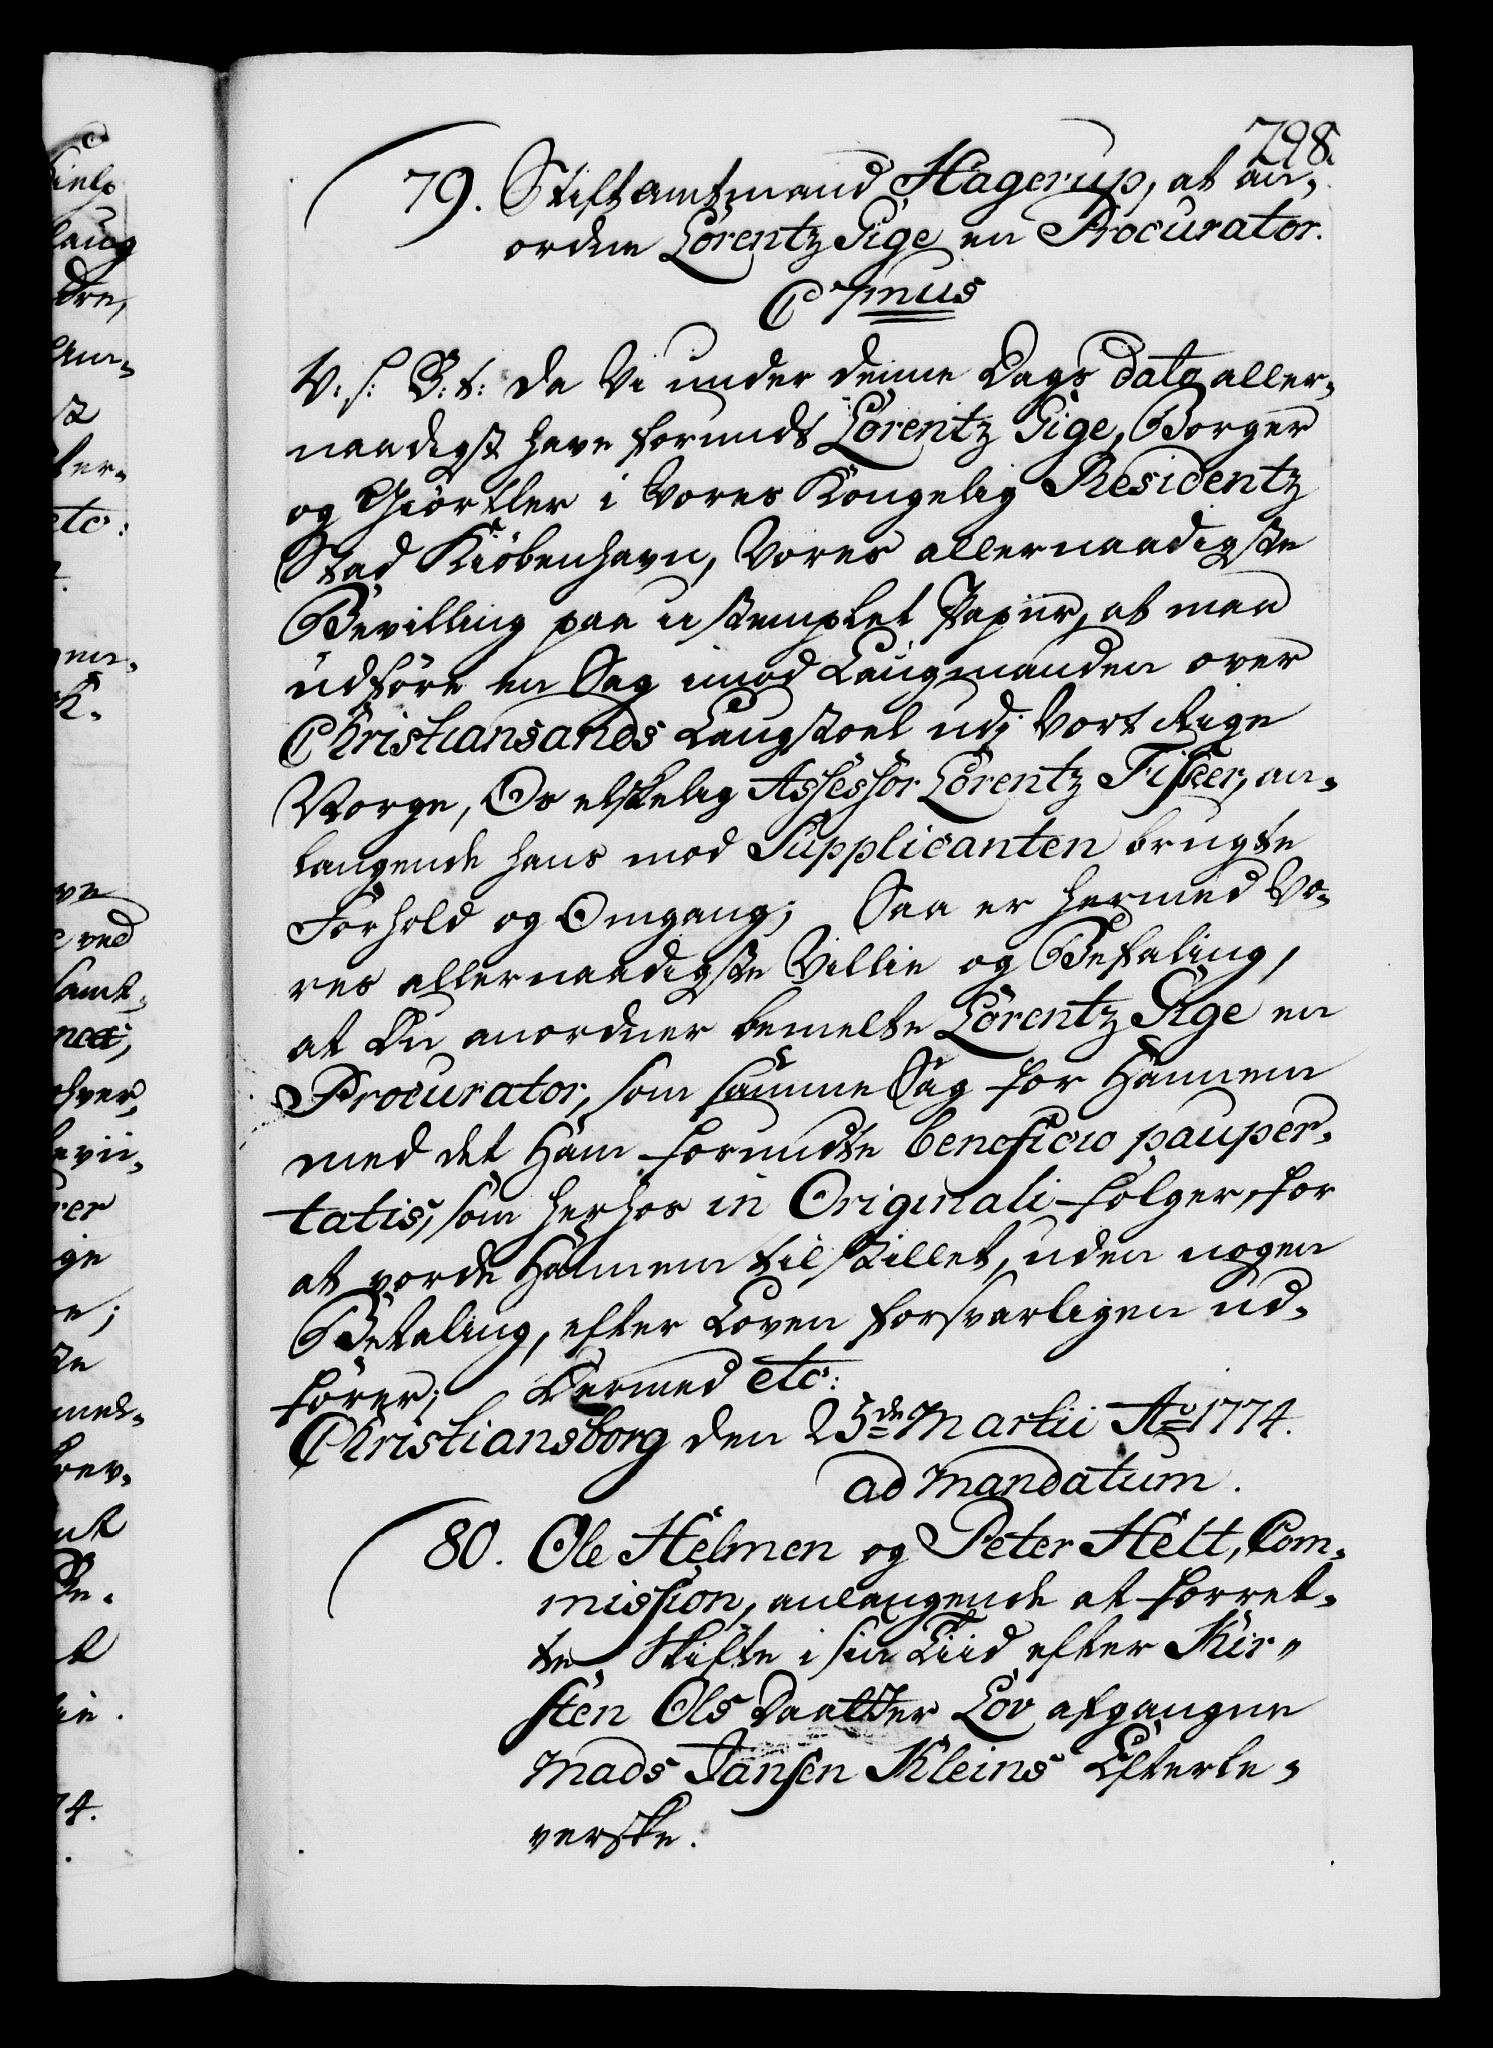 798.
79. Stiftamtmand Hagerup, at an-
ordne Lorentz Gige en Procurator.
C 7mus
V: s: G: t: da Vi under denne Dags dato aller-
naadigst have forundt Lorentz Gige, Borger
og Giörtler i Vores Kongelig Residentz
Stad Kiöbenhavn, Vores allernaadigste
Bevilling paa ustemplet Papiir, at maa
udföre en Sag imod Laugmanden over
Christiansands Laugstoel udj Vort Rige
Norge, Os elskelig Assessor Lorentz Fisker, an-
langende hans mod Supplicanten brugte
Forhold og Omgang; Saa er hermed Vo-
res allernaadigste Villie og Befaling,
at Du anordner bemelte Lorentz Gige en
Procurator, som samme Sag for Hannem
med det Ham forundte beneficio pauper-
tatis, som herhos in Originali fölger, for
at vorde Hannem tilstillet, uden nogen
Betaling, efter Loven forsvarligen ud-
förer; Dermed etc:
Christiansborg den 25de Martii Ao 1774.
ad mandatum.
80. Ole Helmen og Peter Helt, Com-
mission, anlangende at forret-
te Skifte i sin Tiid efter Kir-
sten Ols Daatter Lov afgangne
Mads Jansen Kleins Efterle-
verske.